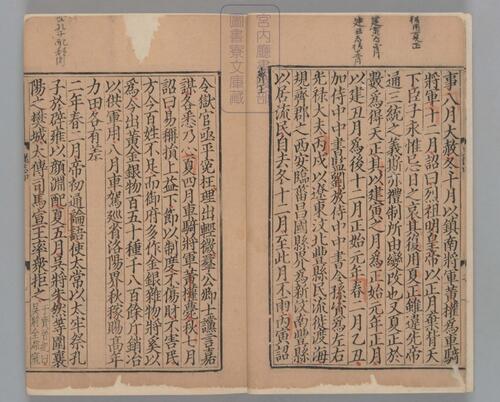 事八月大赦冬十月以鎮南將軍黃權為車騎
將軍十二月詔曰烈祖明皇帝以正月棄背天
下臣子永惟忌日之哀其復用夏正雖違先帝
通三統之義斯亦禮制所由變改也又夏正於
數為得天正其以建寅之月為正始元年正月
以建丑月為後十二月正始元年春二月乙丑
加侍中中書監劉放侍中中書令孫資為左右
光祿大夫丙戌以遼東汶北豐縣民流徙渡海
規齊郡之西安臨菑昌國縣界為新汶南豐縣
以居流民自去冬十二月至此月不雨丙寅詔
宮内廳書陵部
圖書寮文庫藏
令獄官亟平冤枉理出輕微羣公卿士讜言嘉
謀各悉乃心夏四月車騎將軍黃權薨秋七月
詔曰易稱損上益下節以制度不傷財不害民
方今百姓不足而御府多作金銀雜物將奚以
為今出黃金銀物百五十種千八百餘斤銷冶
以供軍用八月車駕巡省洛陽界秋稼賜高年
力田各有差
二年春二月帝初通論語使太常以太牢祭孔
子於辟雍以顏淵配夏五月吳將朱然等圍襄
陽之樊城太傅司馬宣王率衆拒之